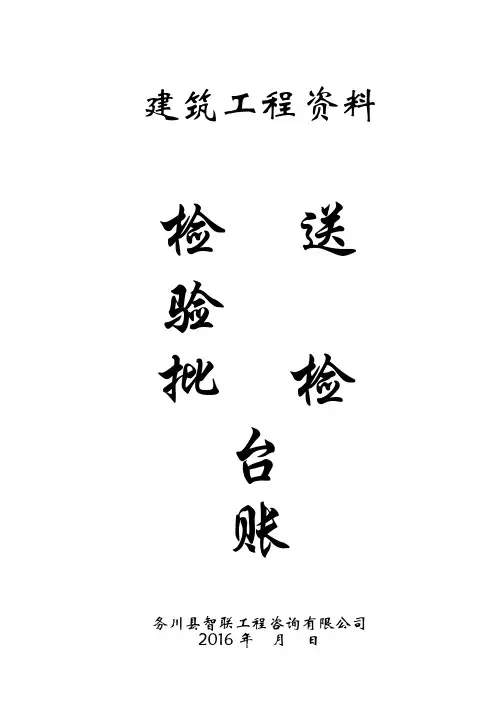 建筑工程资料
检 送
验
批 检
台
账
务川县智联工程咨询有限公司
2016 年 月 日